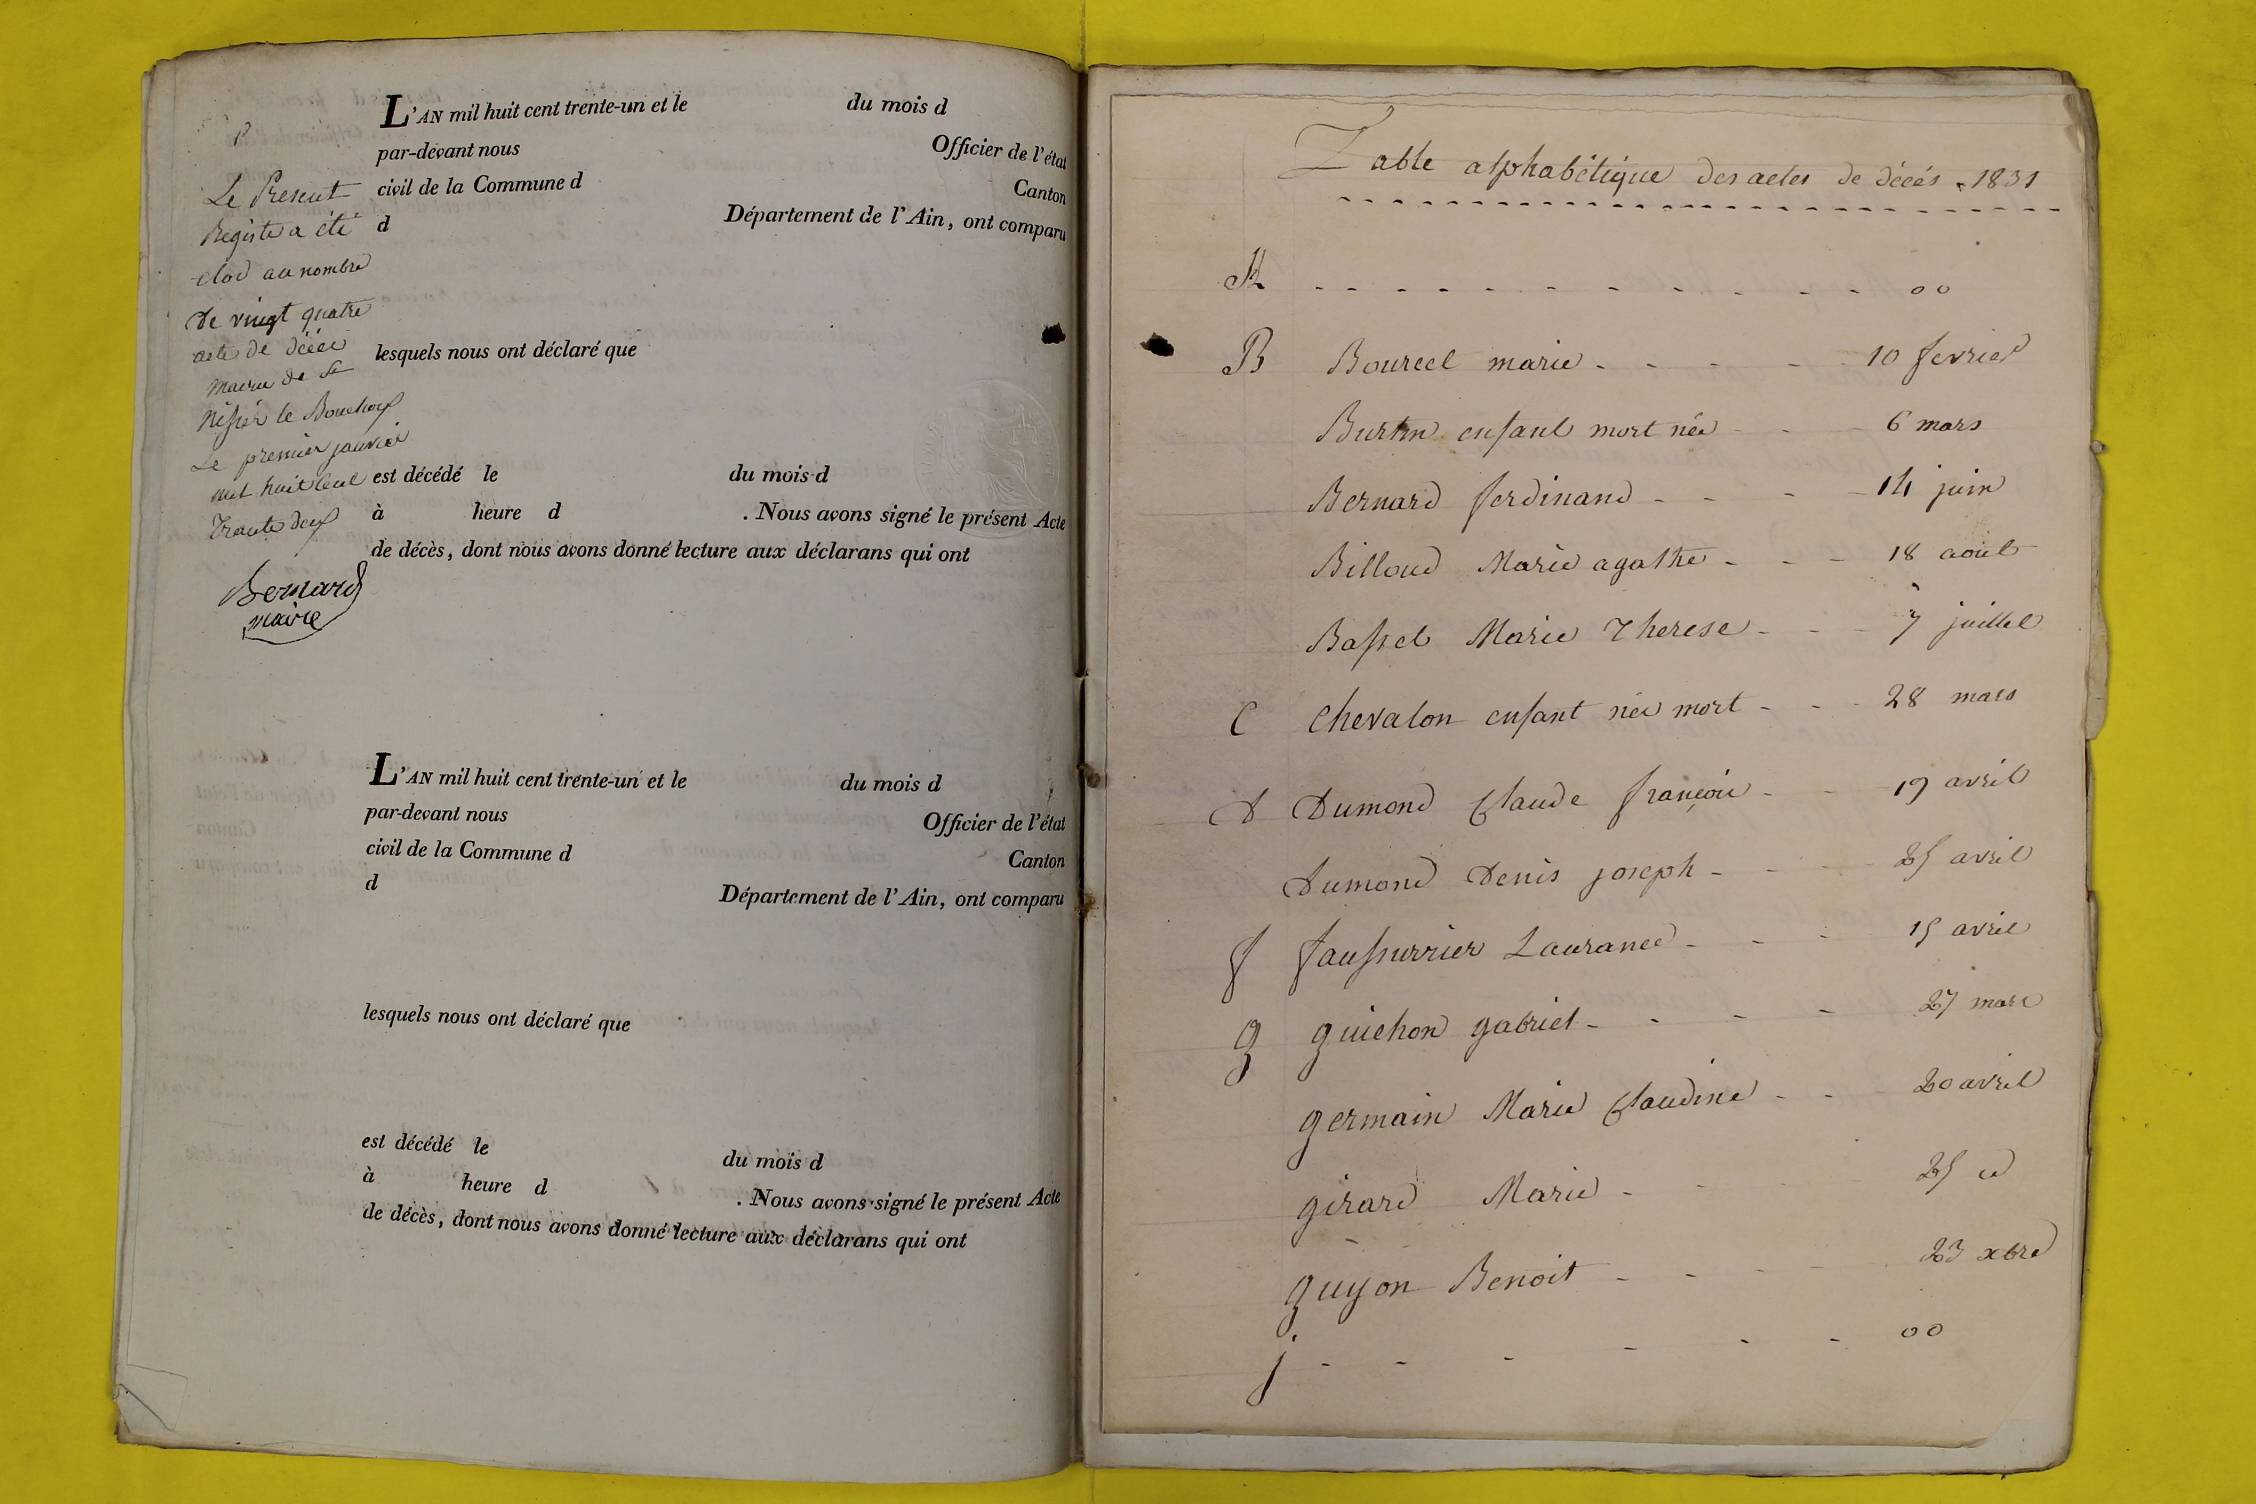 L'AN mil huit cent trente-un et le du mois d
par-devant nous Officier de l'état
civil de la Commune d Canton
d Département de l'Ain, ont comparu
lesquels nous ont déclaré que
est décédé le du mois d
à heure d . Nous avons signé le présent Acte
de décès, dont nous avons donné lecture aux déclarans qui ont
Le Present
Registre a été
clos au nombre
de vingt quatre
actes de décès
mairie de St
Nisier le Bouchoux
Le premier janvier
mil huit cent
trente deux
Bernard
maire
L'AN mil huit cent trente-un et le du mois d
par-devant nous Officier de l'état
civil de la Commune d Canton
d Département de l'Ain, ont comparu
lesquels nous ont déclaré que
est décédé le du mois d
à heure d . Nous avons signé le présent Acte
de décès, dont nous avons donné lecture aux déclarans qui ont
Table alphabétique des actes de décés 1831
A - - - - - - - - - - - 00
B Bourcel marie - - - - - 10 fevrier
Burtin enfant mort née - - - 6 mars
Bernard ferdinand - - - - 14 juin
Billoud Marie agathe - - - 18 aout
Bassel Marie Therese - - - 7 juillet
C Chevalon enfant née mort - - - 28 mars
D Dumond Claude françois - - 19 avril
Dumond Denis joseph - - - 25 avril
f faussurrier Laurance - - - 15 avril
g guichon gabriel - - - - 27 mars
germain Marie Claudine - - 20 avril
girard Marie - - 25 id
guyon Benoit - - - - 23 xbre
j - - - - - - 00